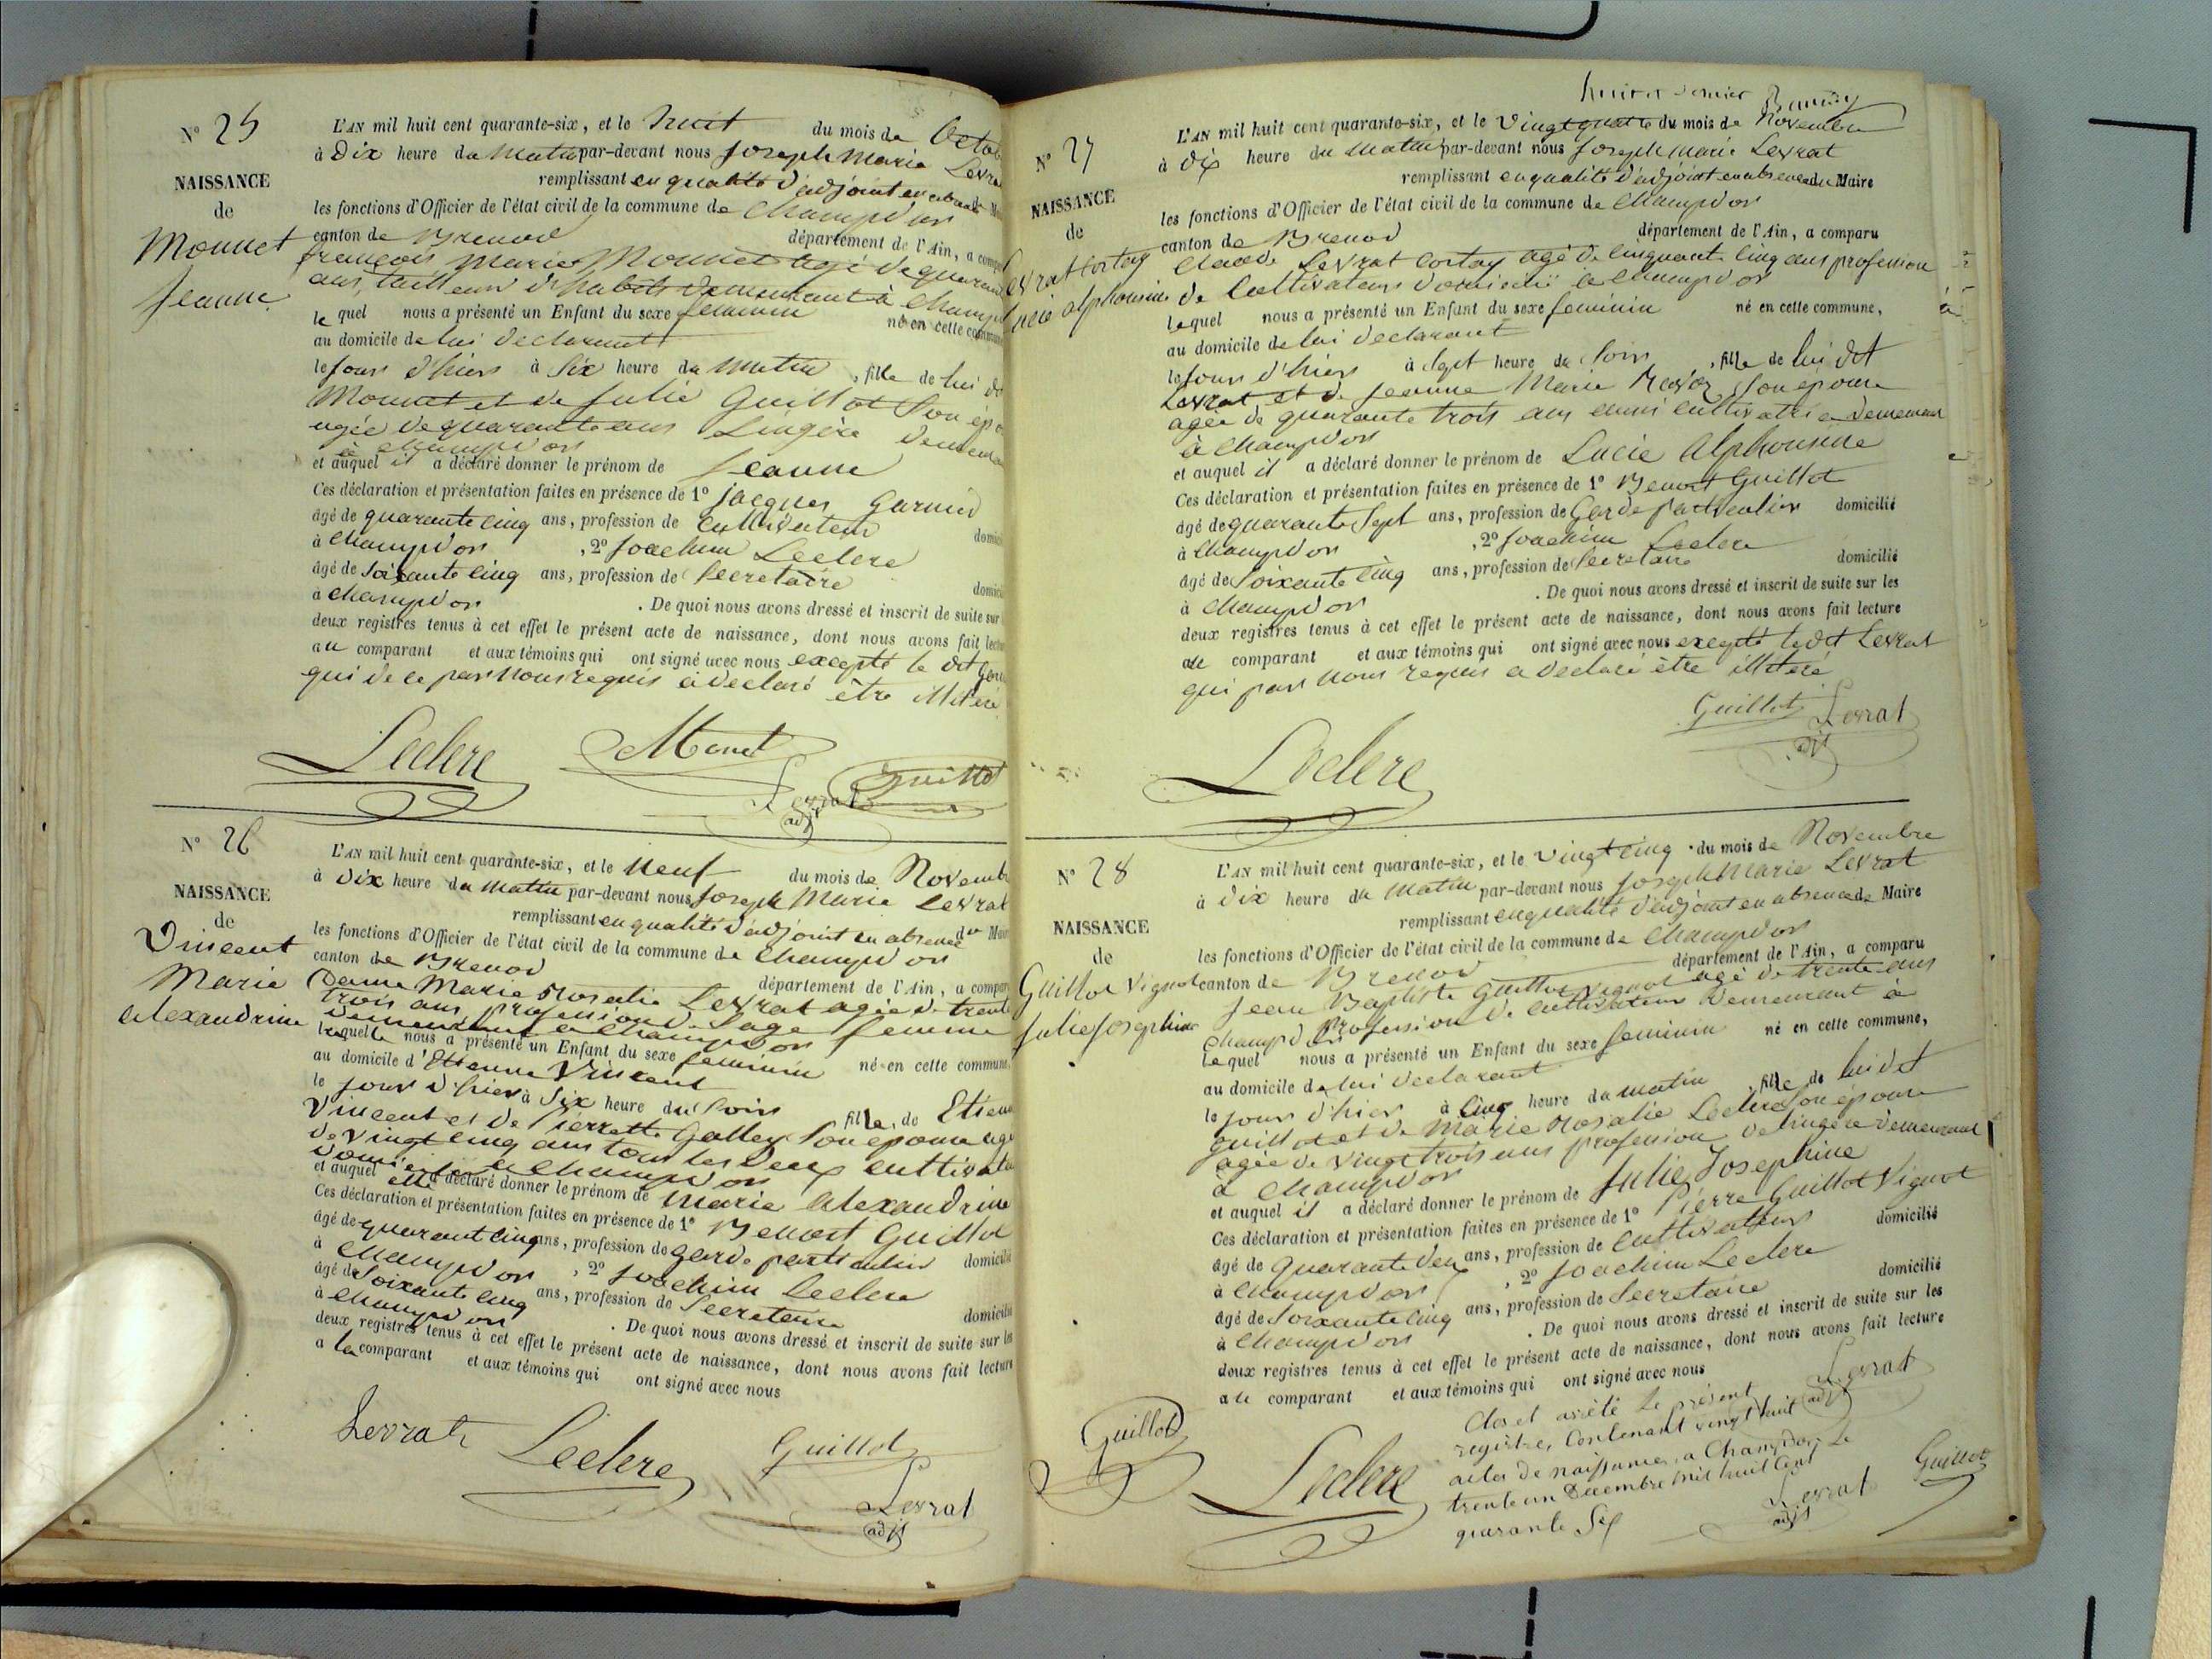 N° 25
NAISSANCE
de
Monnet
Jeanne
L'AN mil huit cent quarante-six, et le huit du mois de Octob
à Dix heure du Matin par-devant nous Joseph Marie Levra
remplissant en qualité d'adjoint en absence du M
les fonctions d'Officier de l'état civil de la commune de Champdor
canton de Brenod département de l'Ain, a compa
françois Marie Monnet agé de quaran
ans, tailleur d'habits demeurant à Champd
le quel nous a présenté un Enfant du sexe feminin né en cette commune
au domicile de lui declarant
le jour d'hier à Six heure du Matin , fille de lui d
Monnet et de Julie Guillot Son épo
agée de quarante ans Lingère demeura
à Champdor
et auquel il a déclaré donner le prénom de Jeanne
Ces déclaration et présentation faites en présence de 1° Jacques Garnier
âgé de quarante cinq ans, profession de Cultivateur domici
à Champdor , 2° Joachim Leclere
âgé de Soixante cinq ans, profession de Secretaire domici
à Champdor . De quoi nous avons dressé et inscrit de suite sur
deux registres tenus à cet effet le présent acte de naissance, dont nous avons fait lectu
au comparant et aux témoins qui ont signé avec nous excepté le dit
qui de ce par Nous requis a declaré être illitéré
Leclere Monet Guillot
Levrat
adjt
N° 26
NAISSANCE
de
Vincent
Marie
alexandrine
L'AN mil huit cent quarante-six, et le Neuf du mois de Novemb
à Dix heure du Matin par-devant nous Joseph Marie Levrat
remplissant en qualité d'adjoint en absence du Mair
les fonctions d'Officier de l'état civil de la commune de Champdor
canton de Brenod département de l'Ain, a compar
Dame Marie Rosalie Levrat agée de trente
trois ans profession de Sage femme
demeurant à Champdor
laquelle nous a présenté un Enfant du sexe feminin né en cette commune
au domicile d'Etienne Vincent
le jour d'hier à Six heure du Soir fille, de Etienn
Vincent et de Pierrette Galley Son épouse agé
de vingt cinq ans tous les deux cultivate
à Champdor
et auquel elle a déclaré donner le prénom de Marie Alexandrine
Ces déclaration et présentation faites en présence de 1° Benoit Guillot
âgé de quarant cinq ans, profession de garde particulier domicilié
à Champdor , 2° Joachim Leclere
âgé de Soixante cinq ans, profession de Secretaire domicilié
à Champdor . De quoi nous avons dressé et inscrit de suite sur les
deux registres tenus à cet effet le présent acte de naissance, dont nous avons fait lecture
a la comparant et aux témoins qui ont signé avec nous
Levrat Leclere Guillot
Levrat
adjt
N° 27
NAISSANCE
de
Levrat Cortay
Lucie alphonsine
L'AN mil huit cent quarante-six, et le Vingt quatre du mois de Novembre
à dix heure du Matin par-devant nous Joseph Marie Levrat
remplissant en qualité d'adjoint en absence du Maire
les fonctions d'Officier de l'état civil de la commune de Champdor
canton de Brenod département de l'Ain, a comparu
Claude Levrat Cortay agé de Cinquante Cinq ans profession
de Cultivateur domicilié à Champdor
Lequel nous a présenté un Enfant du sexe feminin né en cette commune,
au domicile de lui declarant
le jour d'hier à Sept heure du Soir , fille de lui dit
Levrat et de Jeanne Marie Son épouse
agée de quarante trois ans aussi cultivatrice demeurant
à Champdor
et auquel il a déclaré donner le prénom de Lucie Alphonsine
Ces déclaration et présentation faites en présence de 1° Benoit Guillot
âgé de quarante Sept ans, profession de Garde particulier domicilié
à Champdor , 2° Joachim Leclere
âgé de Soixante cinq ans, profession de Secretaire domicilié
à Champdor . De quoi nous avons dressé et inscrit de suite sur les
deux registres tenus à cet effet le présent acte de naissance, dont nous avons fait lecture
au comparant et aux témoins qui ont signé avec nous excepté le dit Levrat
qui par Nous requis a declaré être illitéré
Guillot Levrat
adjt
Leclere
N° 28
NAISSANCE
de
Guillot Vignot
Julie Josephine
L'AN mil huit cent quarante-six, et le Vingt cinq du mois de Novembre
à Dix heure du Matin par-devant nous Joseph Marie Levrat
remplissant en qualité d'adjoint en absence de Maire
les fonctions d'Officier de l'état civil de la commune de Champdor
canton de Brenod département de l'Ain, a comparu
Jean Baptiste Guillot Vignot agé de trente ans
Profession de Cultivateur Demeurant à
Champdor
Lequel nous a présenté un Enfant du sexe feminin né en cette commune,
au domicile de lui declarant
le jour d'hier à Cinq heure du matin , fille de lui dit
guillot et de Marie Rosalie Leclere Son épouse
agée de vingt trois ans profession de lingère demeurant
à Champdor
et auquel il a déclaré donner le prénom de Julie Josephine
Ces déclaration et présentation faites en présence de 1° Pierre Guillot Vignot
âgé de quarante deux ans, profession de Cultivateur domicilié
à Champdor , 2° Joachim Leclere
âgé de Soixante Cinq ans, profession de Secretaire domicilié
à Champdor . De quoi nous avons dressé et inscrit de suite sur les
deux registres tenus à cet effet le présent acte de naissance, dont nous avons fait lecture
au comparant et aux témoins qui ont signé avec nous
Guillot Leclere Levrat
adjt
Clos et arrêté le présent
registre, Contenant vingt huit
actes de naissance, a Champdor, le
trente un Decembre mil huit Cent
quarante Six
Levrat
adjt
Guillot